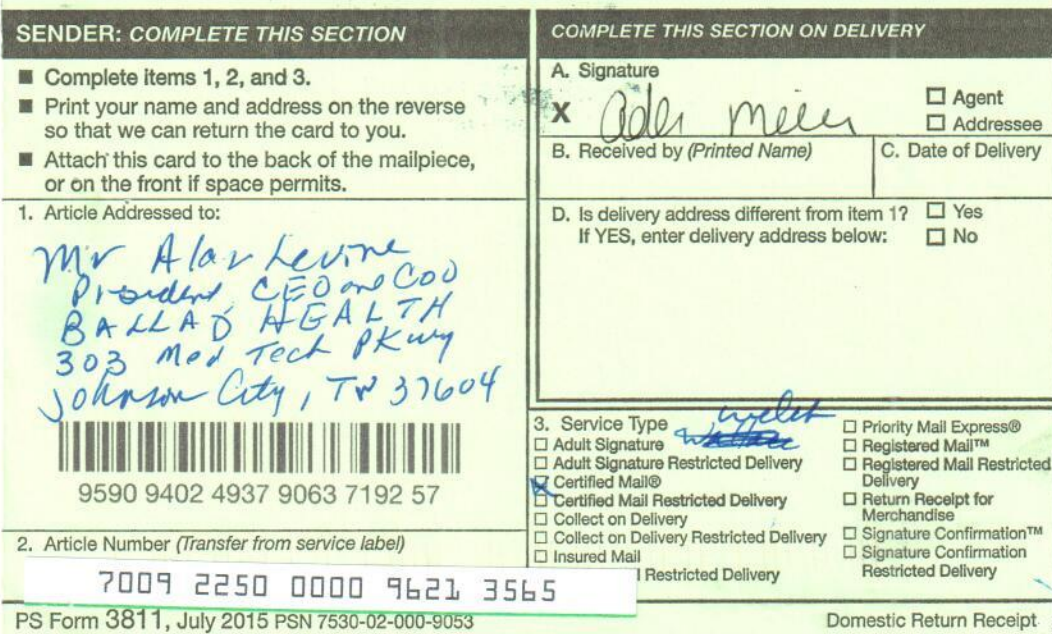 SENDER: COMPLETE THIS SECTION
■ Complete items 1, 2, and 3.
■ Print your name and address on the reverse
so that we can return the card to you.
■ Attach this card to the back of the mailpiece,
or on the front if space permits.
1. Article Addressed to:
Mr Alan Levine
President CEO and COO
BALLAD HEALTH
303 Med Tech PKwy
Johnson City, TN 37604
9590 9402 4937 9063 7192 57
2. Article Number (Transfer from service label)
7009 2250 0000 9621 3565
PS Form 3811, July 2015 PSN 7530-02-000-9053
COMPLETE THIS SECTION ON DELIVERY
A. Signature
X
☐ Agent
☐ Addressee
B. Received by (Printed Name)
C. Date of Delivery
D. Is delivery address different from item 1? ☐ Yes
If YES, enter delivery address below: ☐ No
3. Service Type
☐ Adult Signature
☐ Adult Signature Restricted Delivery
☒ Certified Mail®
☐ Certified Mail Restricted Delivery
☐ Collect on Delivery
☐ Collect on Delivery Restricted Delivery
☐ Insured Mail
Restricted Delivery
☐ Priority Mail Express®
☐ Registered Mail™
☐ Registered Mail Restricted
Delivery
☐ Return Receipt for
Merchandise
☐ Signature Confirmation™
☐ Signature Confirmation
Restricted Delivery
Domestic Return Receipt